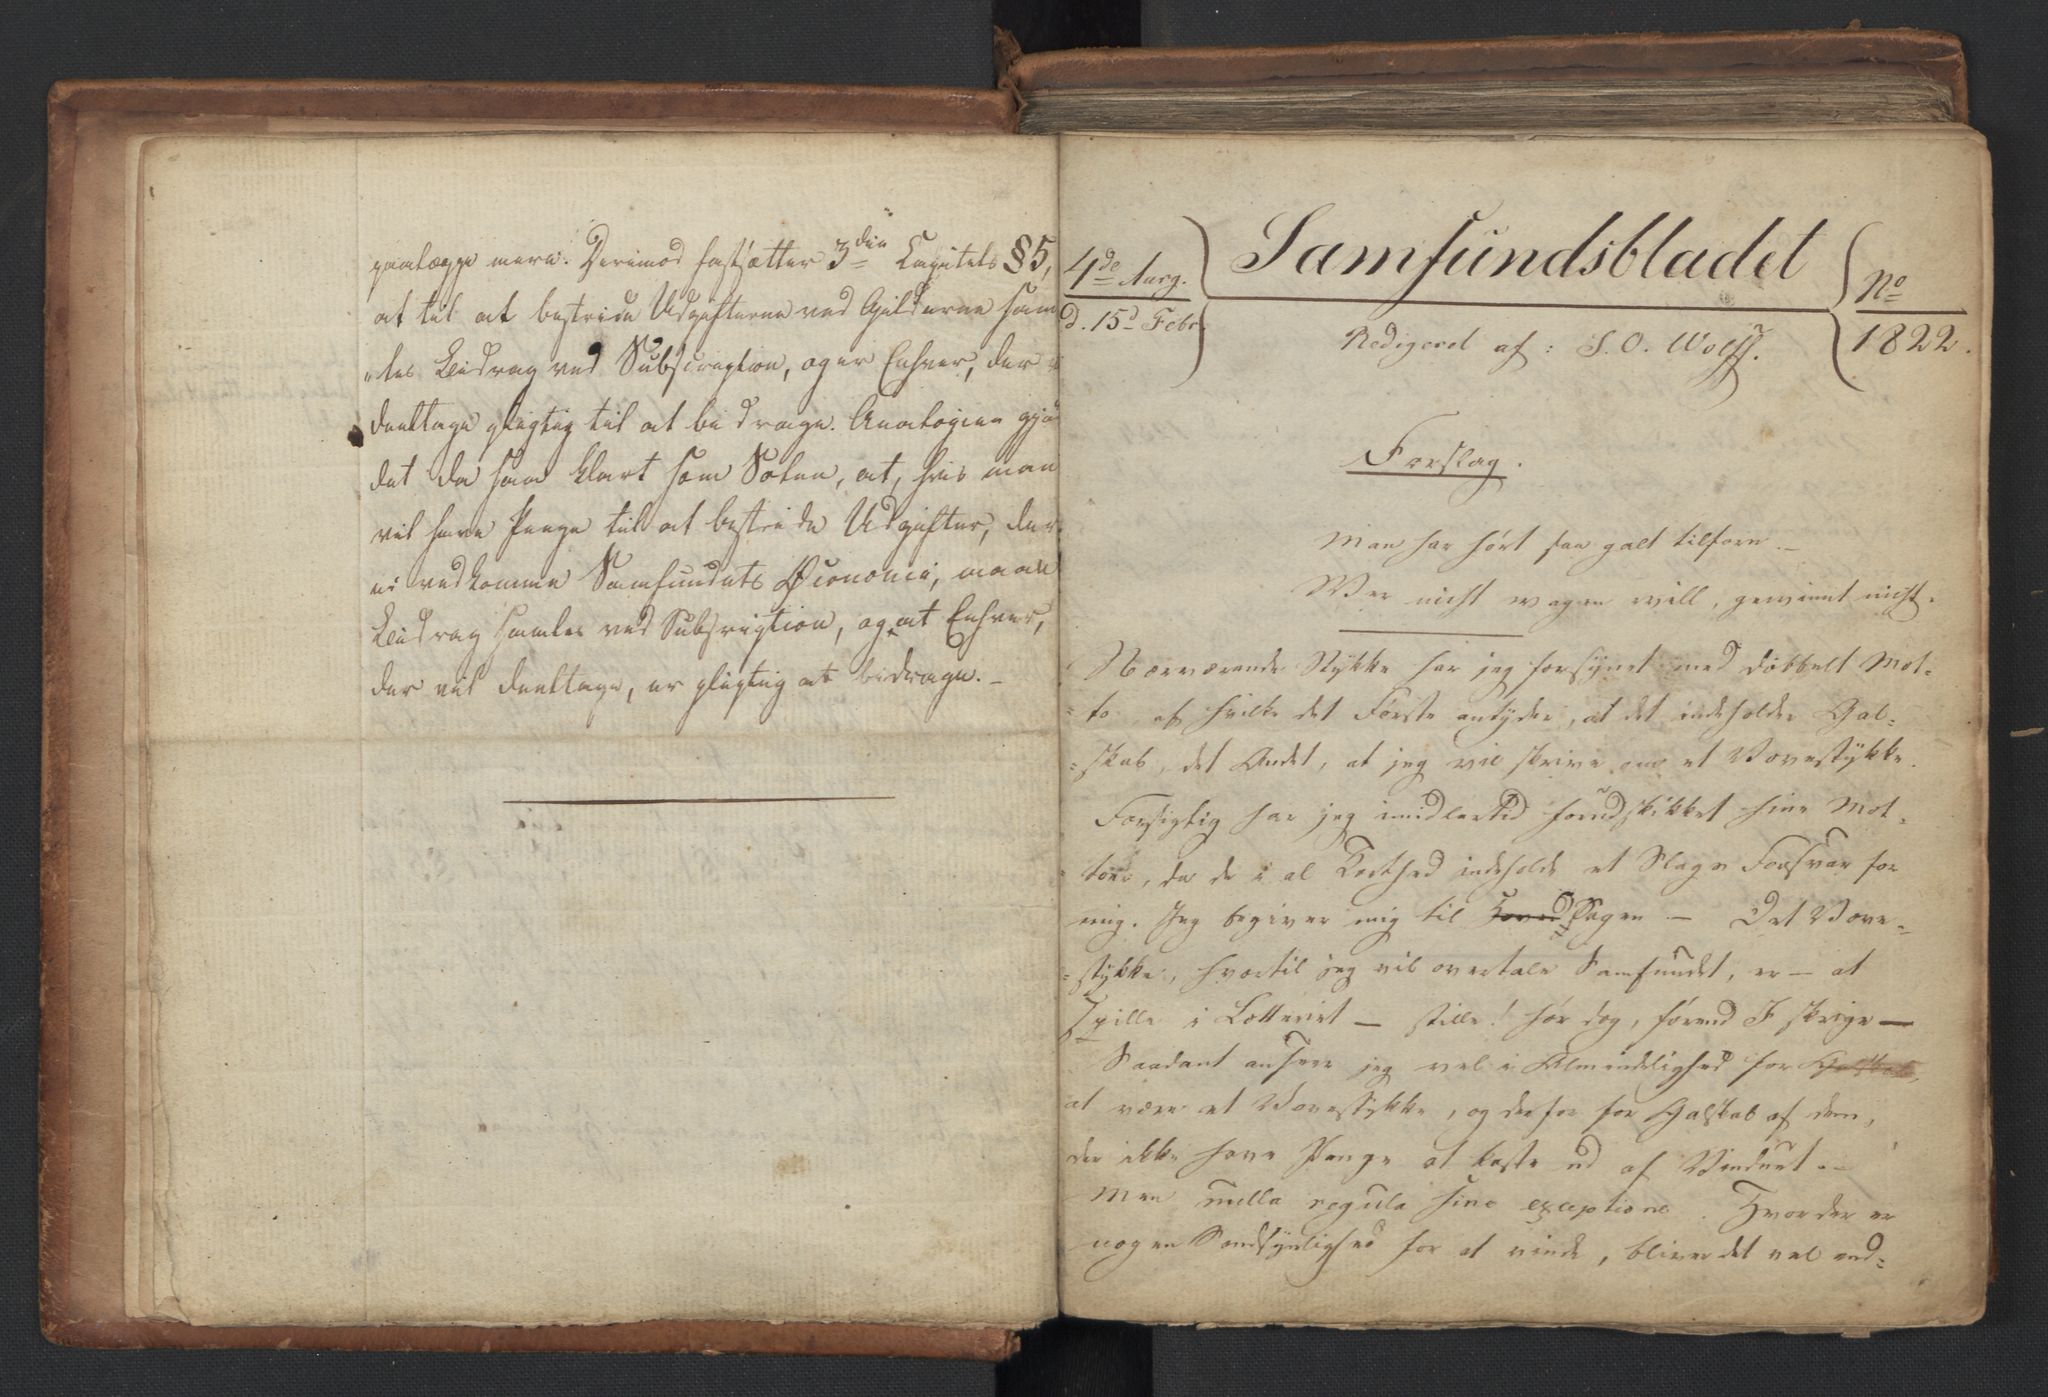 paalægge mere. Derimod fastsætter 3die Capitels §5,
at til at bestride Udgifterne ved Gilderne sam
„les Bidrag ved Subscription, og er Enhver, der
deeltage pligtig til at bidrage. Analogien gjø
det da saa klart som Solen, at, hvis man
vil have Penge til at bestride Udgifter, der
ei vedkomme Samfundets Oeconomie, maae
Bidrag samles ved Subscription, og at Enhver,
der vil deeltage, er pligtig at bidrage. –
4de Aarg.
d. 15d Febr.
Samfundsbladet
Redigeret af: S. O. Wolff.
No
1822.
Forslag.
Man har hørt saa galt tilforn. –
Wer nicht wagen will, gewinnt nicht.
Nærværende Stykke har jeg forsynet med dobbelt Mot-
-to af hvilke det Første antyder, at det indeholder Gal-
-skab, det Andet, at jeg vil skrive om et Vovestykke.
Forsigtig har jeg imidlertid forudskikket hine Mot-
-toer, da de i al Korthed indeholde et Slags Forsvar for
mig. Jeg begiver mig til Hoved Sagen. – Det Vove-
-stykke, hvortil jeg vil overtale Samfundet, er – at
spille i Lotteriet – stille! hør dog, førend I skrige –
Saadant anseer jeg vel i Almindelighed for Galskab,
at være et Vovestykke, og derfor for Galskab af dem,
der ikke have Penge at kaste ud af Vinduet. –
Men nulla regula sine exceptione. Hvor der er
nogen Sandsynlighed for at vinde, bliver det vel end-